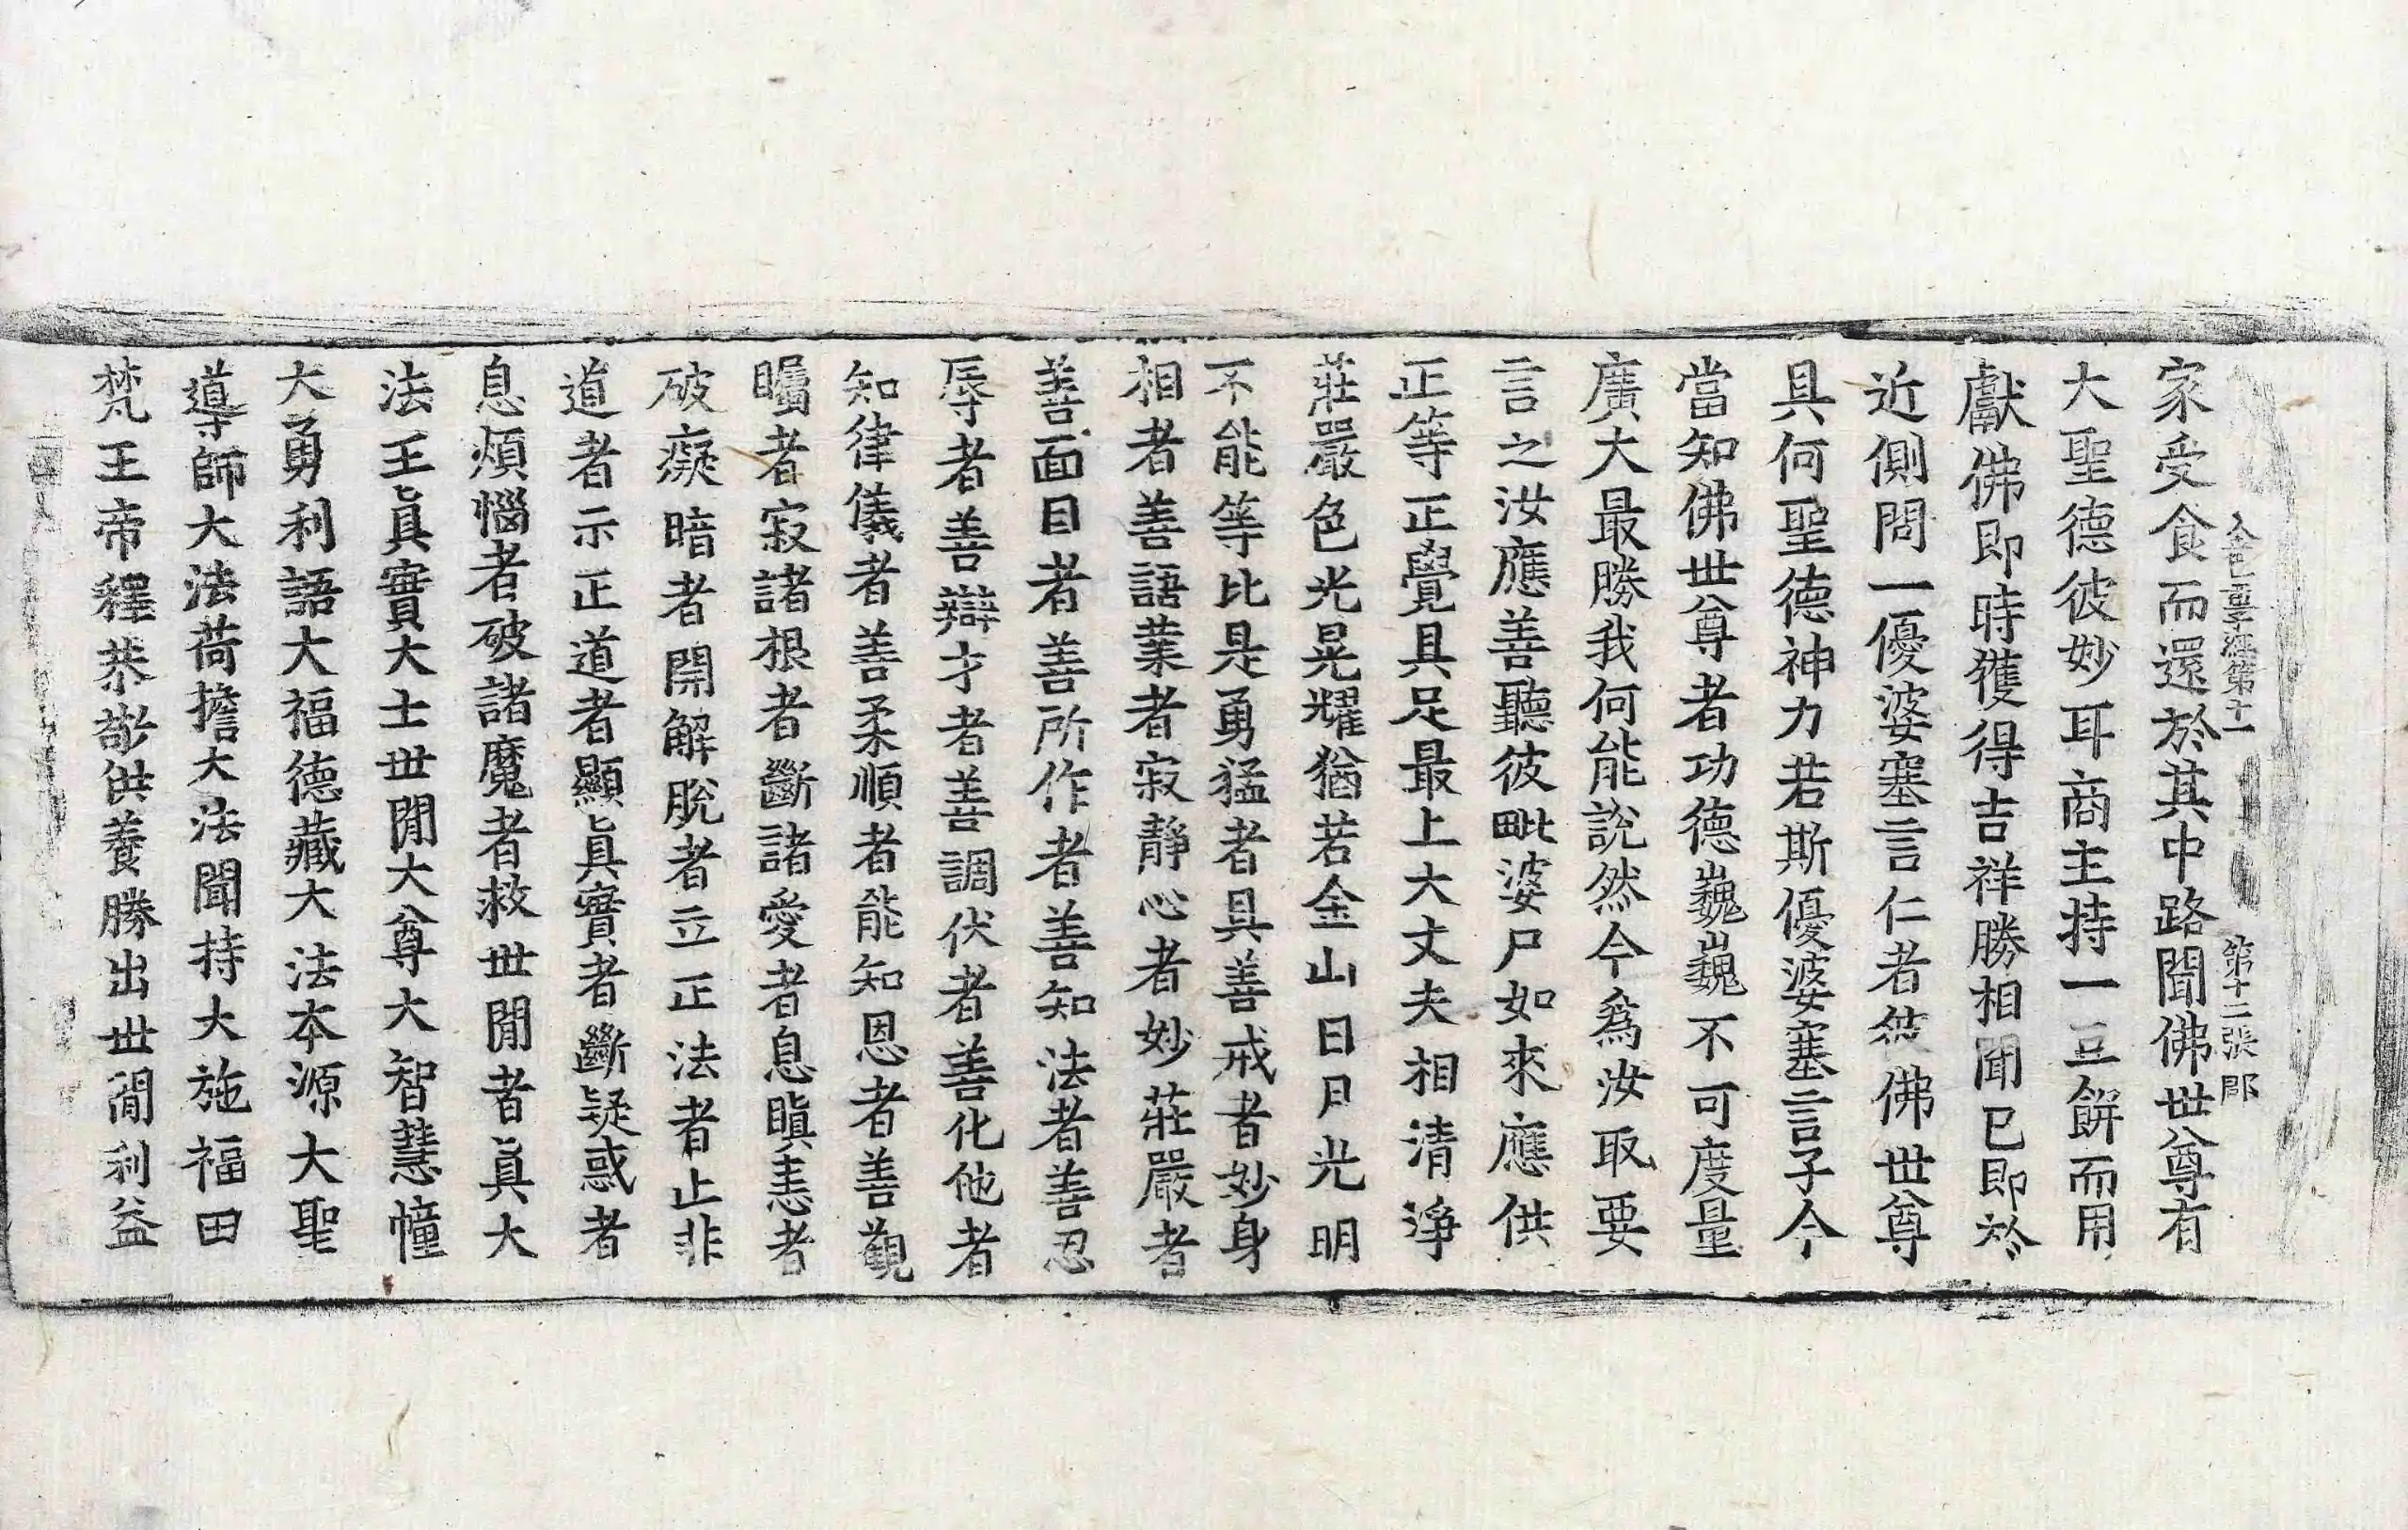 金色童子經第十一 第十二張 郡
家受食而還於其中路聞佛世尊有
大聖德彼妙耳商主持一豆餅而用
獻佛即時獲得吉祥勝相聞已即於
近側問一優婆塞言仁者然佛世尊
具何聖德神力若斯優婆塞言子今
當知佛世尊者功德巍巍不可度量
廣大最勝我何能說然今爲汝取要
言之汝應善聽彼毗婆尸如來應供
正等正覺具足最上大丈夫相清淨
莊嚴色光晃耀猶若金山日月光明
不能等比是勇猛者具善戒者妙身
相者善語業者寂靜心者妙莊嚴者
善面目者善所作者善知法者善忍
辱者善辯才者善調伏者善化他者
知律儀者善柔順者能知恩者善觀
矚者寂諸根者斷諸愛者息瞋恚者
破癡暗者開解脫者立正法者止非
道者示正道者顯眞實者斷疑惑者
息煩惱者破諸魔者救世閒者眞大
法王眞實大士世閒大尊大智慧幢
大勇利語大福德藏大法本源大聖
導師大法荷擔大法聞持大施福田
梵王帝釋恭敬供養勝出世閒利益